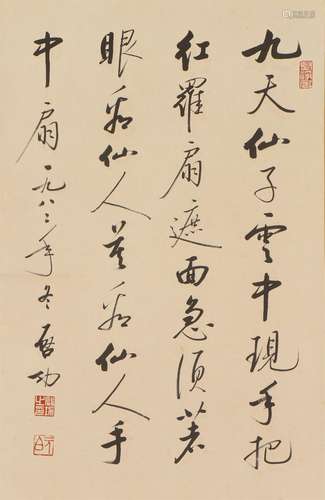 九天仙子云中現手把
红羅扇遮面急须著
眼看仙人莫看仙人手
中扇一九八三年冬启功